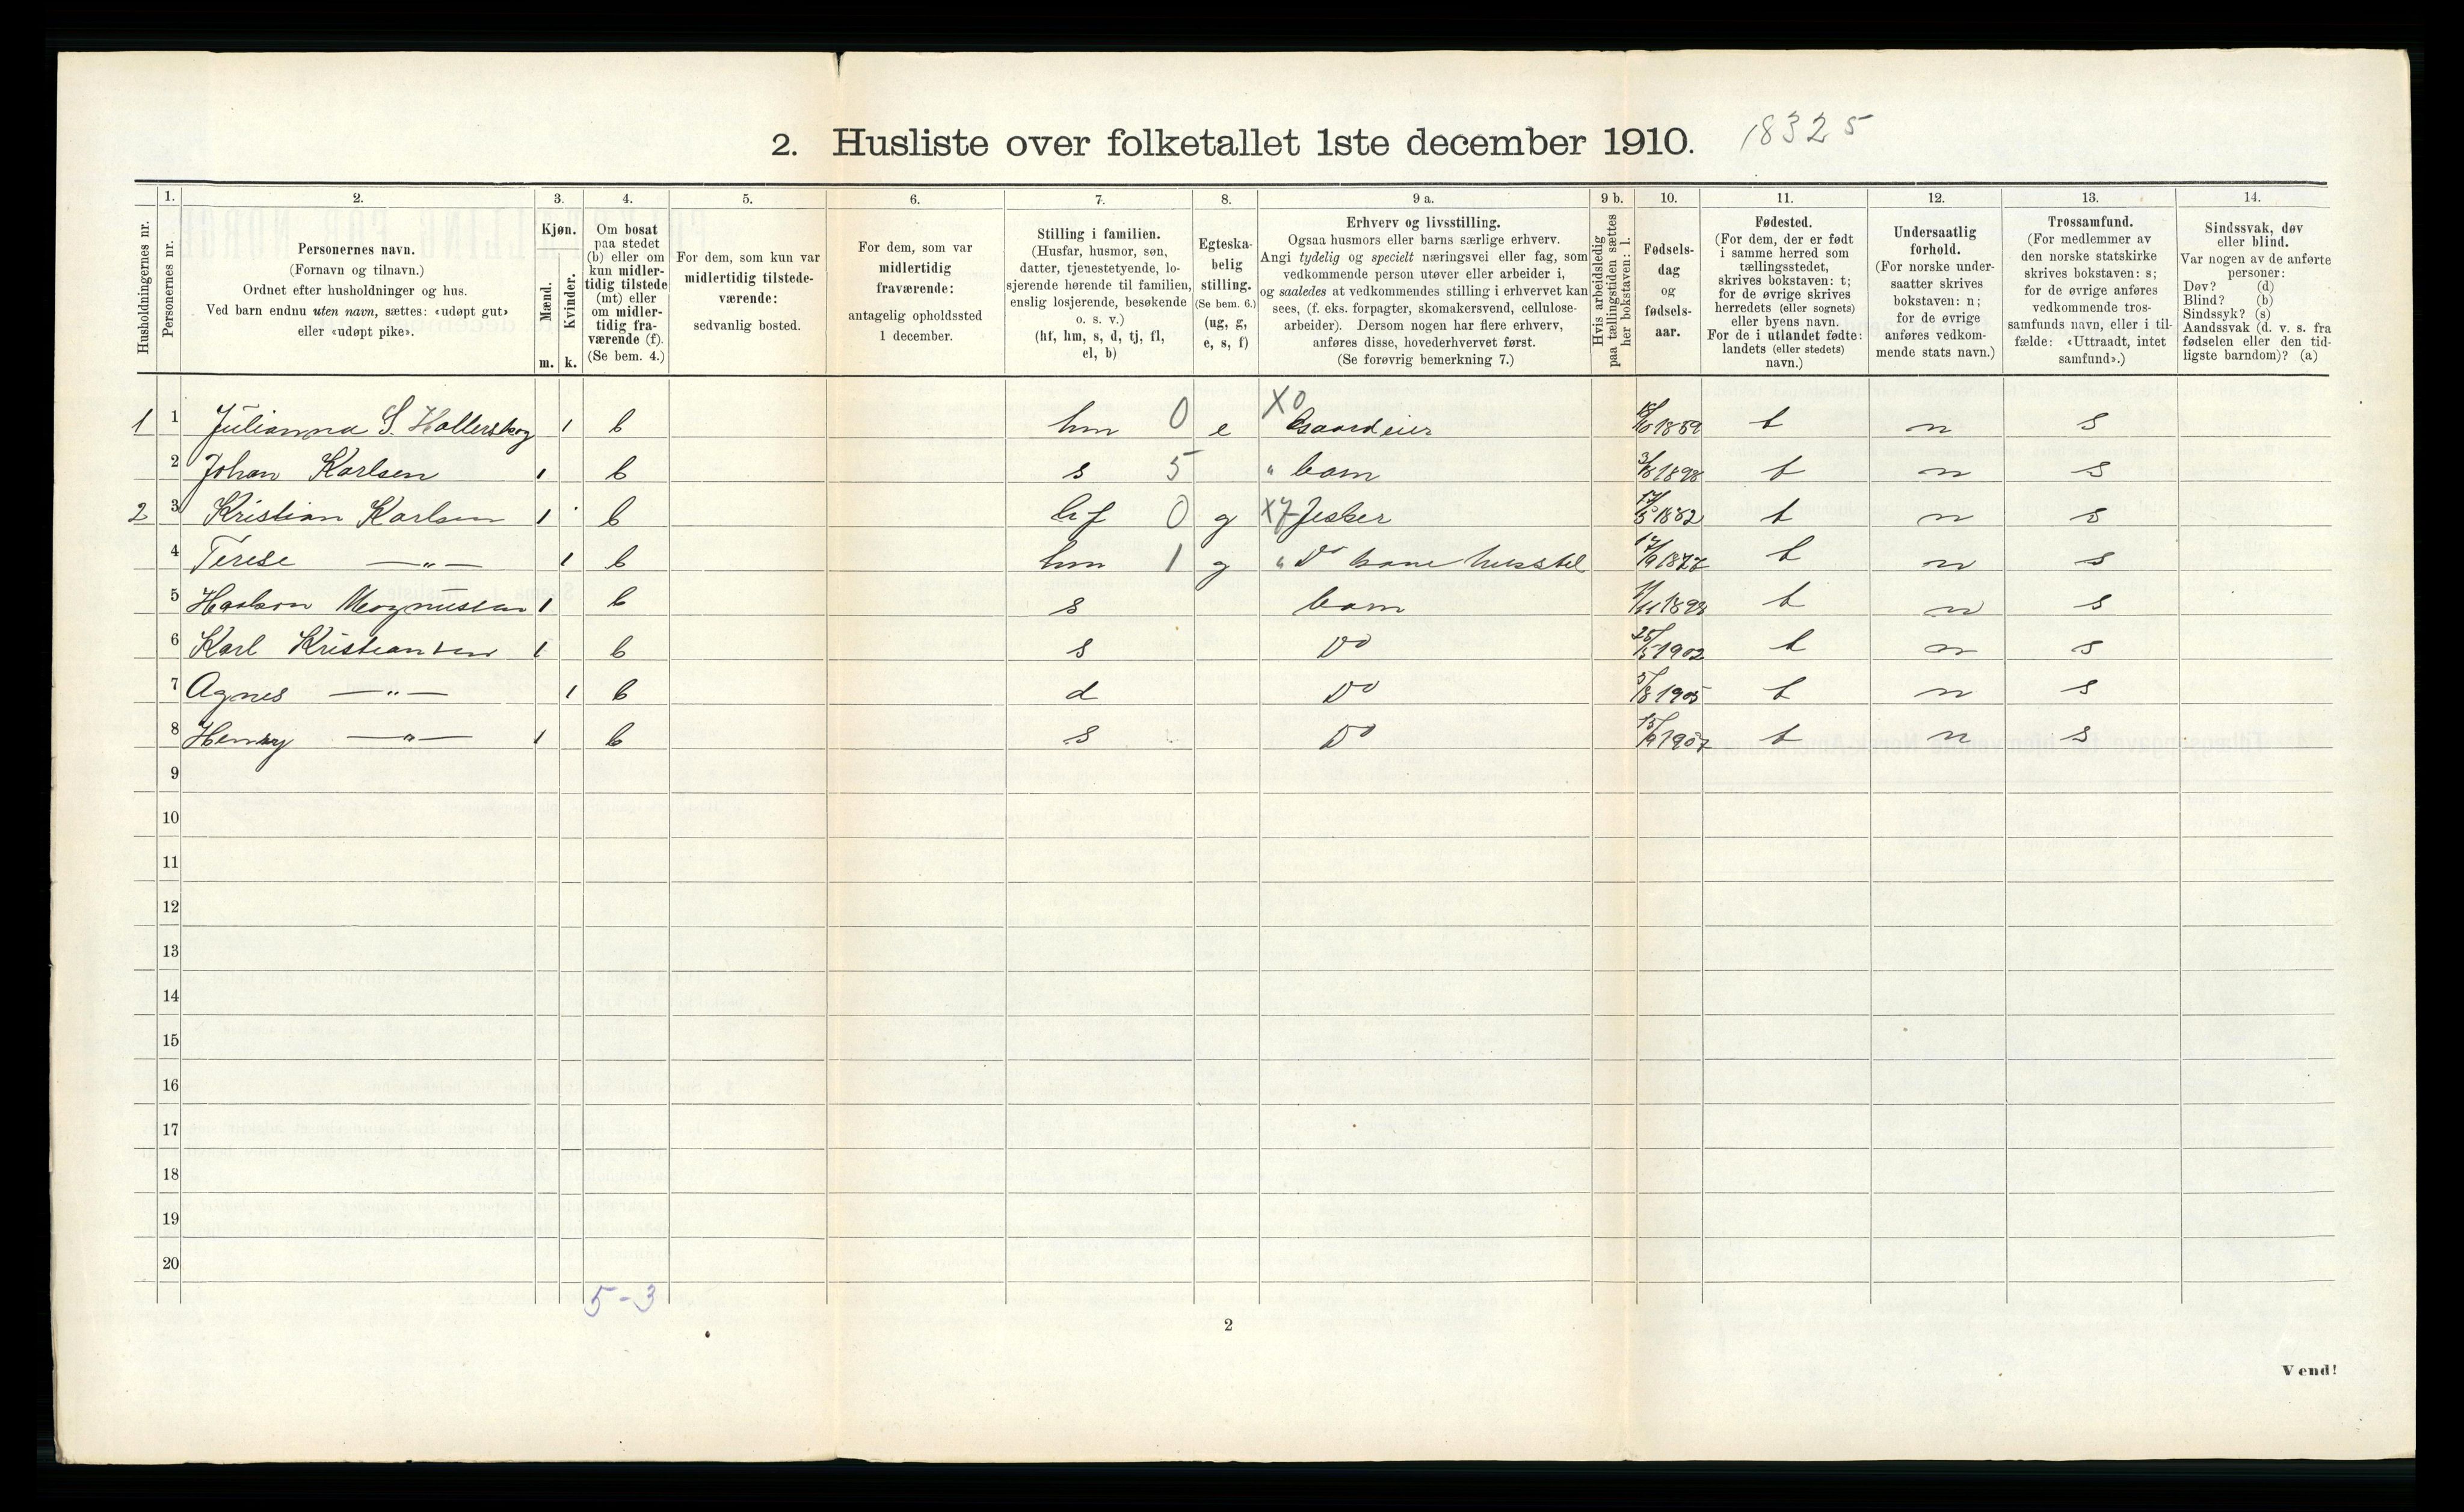 2. Husliste over folketallet 1ste december 1910. 18325
Husholdningernes nr.
1.
Personernes nr.
2.
Personernes navn.
(Fornavn og tilnavn.)
Ordnet efter husholdninger og hus.
Ved barn endnu uten navn, sættes: «udøpt gut»
eller «udøpt pike».
3.
Kjøn.
Mænd.
Kvinder.
m. k.
4.
Om bosat
paa stedet
(b) eller om
kun midler-
tidig tilstede
(mt) eller
om midler-
tidig fra-
værende (f).
(Se bem. 4.)
5.
For dem, som kun var
midlertidig tilstede-
værende:
sedvanlig bosted.
6.
For dem, som var
midlertidig
fraværende:
antagelig opholdssted
1 december.
7.
Stilling i familien.
(Husfar, husmor, søn,
datter, tjenestetyende, lo-
sjerende hørende til familien,
enslig losjerende, besøkende
o. s. v.)
(hf, hm, s, d, tj, fl,
el, b)
8.
Egteska-
belig
stilling.
(Se bem. 6.)
(ug, g,
e, s, f)
9 a.
Erhverv og livsstilling.
Ogsaa husmors eller barns særlige erhverv.
Angi tydelig og specielt næringsvei eller fag, som
vedkommende person utøver eller arbeider i,
og saaledes at vedkommendes stilling i erhvervet kan
sees, (f. eks. forpagter, skomakersvend, cellulose-
arbeider). Dersom nogen har flere erhverv,
anføres disse, hovederhvervet først.
(Se forøvrig bemerkning 7.)
9 b.
Hvis arbeidsledig
paa tællingstiden sættes
her bokstaven: l.
10.
Fødsels-
dag
og
fødsels-
aar.
11.
Fødested.
(For dem, der er født
i samme herred som
tællingsstedet,
skrives bokstaven: t;
for de øvrige skrives
herredets (eller sognets)
eller byens navn.
For de i utlandet fødte:
landets (eller stedets)
navn.)
12.
Undersaatlig
forhold.
(For norske under-
saatter skrives
bokstaven: n;
for de øvrige
anføres vedkom-
mende stats navn.)
13.
Trossamfund.
(For medlemmer av
den norske statskirke
skrives bokstaven: s;
for de øvrige anføres
vedkommende tros-
samfunds navn, eller i til-
fælde: «Uttraadt, intet
samfund».)
14.
Sindssvak, døv
eller blind.
Var nogen av de anførte
personer:
Døv? (d)
Blind? (b)
Sindssyk? (s)
Aandssvak (d. v. s. fra
fødselen eller den tid-
ligste barndom)? (a)
1 1 Julianna S. Hollerskog 1 b hm 0 e X0 Gaardeier 1859 t n s
2 Johan Karlsen 1 b s 5 " barn 3/8 1898 t n s
2 3 Kristian Karlsen 1 b hf 0 g X7 Fesker 17/5 1882 t n s
4 Terese —"— 1 b hm 1 g " Do kone husstel 17/9 1877 t n s
5 Haakon Magnussen 1 b s barn 1/11 1898 t n s
6 Karl Kristiansen 1 b s Do 25/5 1902 t n s
7 Agnes —"— 1 b d Do 5/8 1905 t n s
8 Henry —"— 1 b s Do 15/9 1907 t n s
9
10
11
12
13
14
15
16
17
18
19
20
5-3
2
Vend!